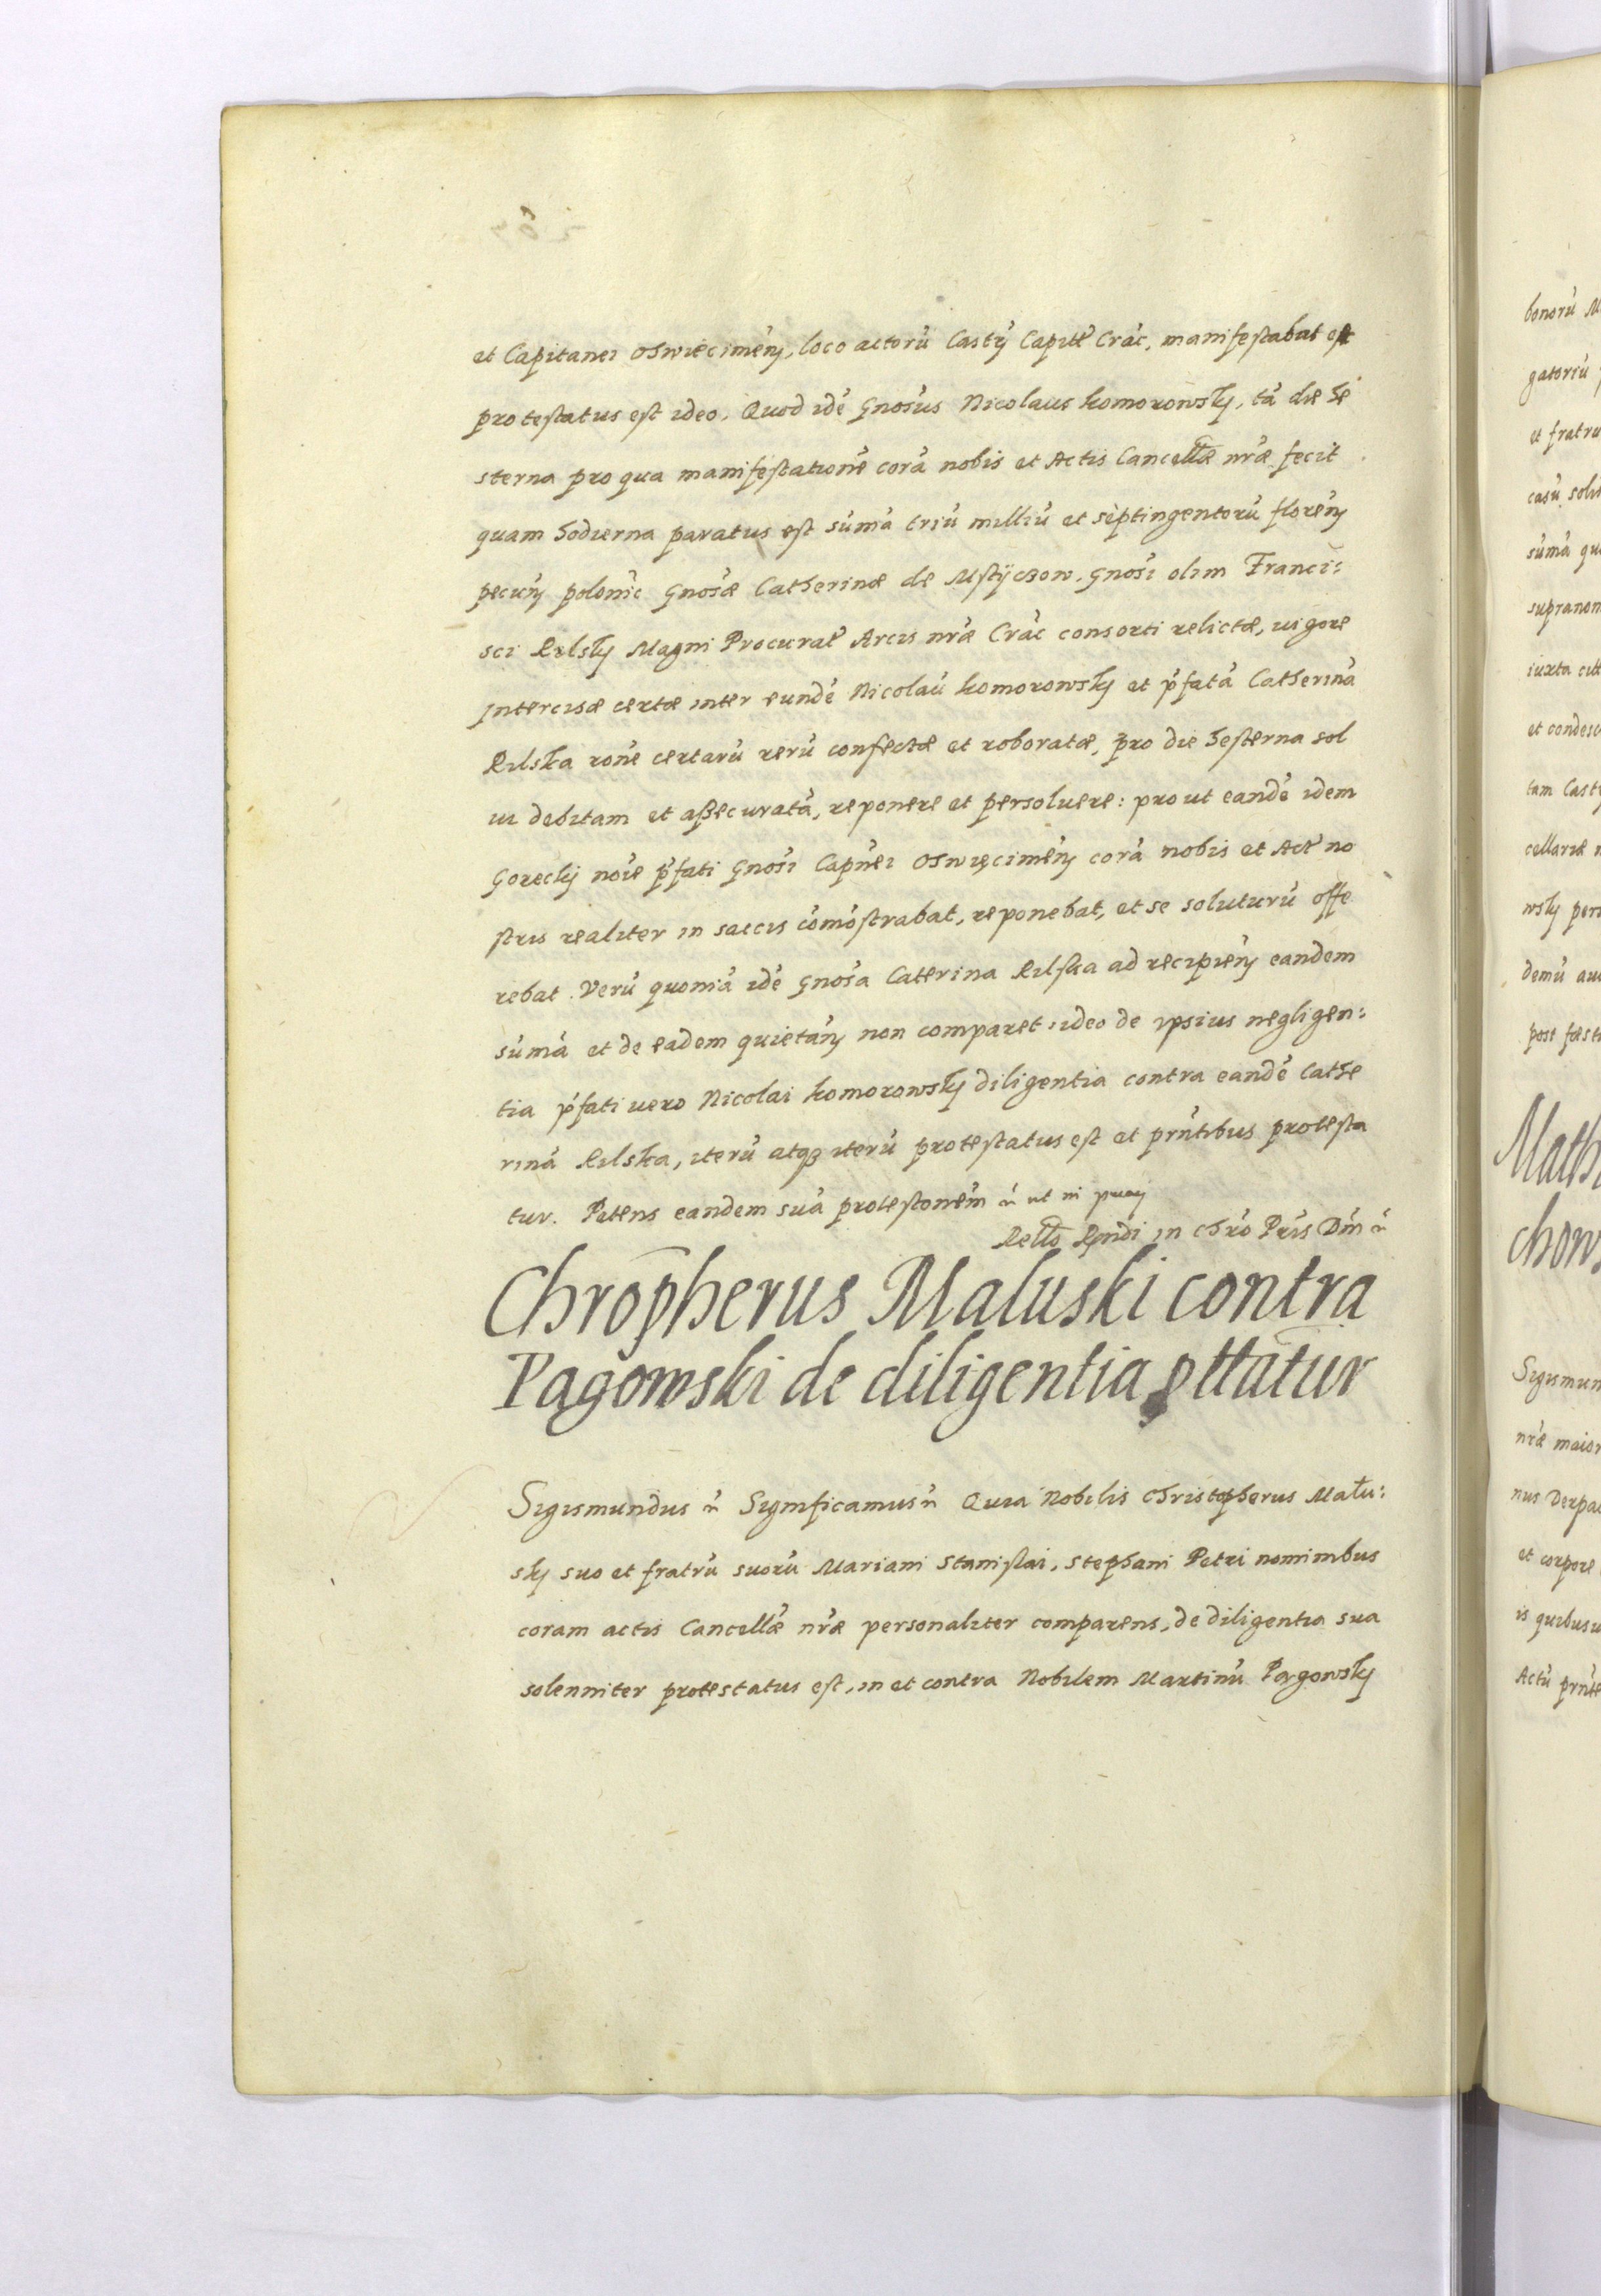 et Capitanei Oswiecimeṅ, loco actorū Castrj Capitł Crac̄, manifestabat et
protestatus est ideo, Quod idē Gnosus Nicolaus Komorowskj, tā die he
sterna pro qua manifestationē corā nobis et Actis Cancellæ nræ fecit
quam hodierna paratus est sūmā triū milliū et septingentorū floreṅ
pecuṅ polonic Gnosæ Catherinæ de Mstÿczow, Gnosi olim Franci:
sci Rilskj Magni Procurat Arcis nræ Crac̄ consorti relictæ, uigore
Intercisæ certæ inter eundē Nicolaū Komorowskj et p̄fatā Catherinā
Rilska rone certarū rerū confectæ et roboratæ, pro die hesterna sol
ui debitam et aßecuratā, reponere et persoluere: prout eandē idem
Goreckj noīe p̄fati Gnosi Capnei Oswięcimeṅ corā nobis et Act no
stris realiter in saccis cōmōstrabat, reponebat, et se soluturū offe
rebat. Verū quoniā idē Gnosa Caterina Rilska ad recipieṅ eandem
sūmā et de eadem quietaṅ non comparet, ideo de ipsius negligen:
tia p̄fati uero Nicolai Komorowskj diligentia contra eandē Cathe
rinā Rilska, iterū atqз iterū protestatus est et prn̄tibus protesta
tur. Petens eandem suā protestonem ut in
Rello Rndi in Chro Pris Dm̄
Chropherus Maluski contra
Pągowski de diligentia pttatur
Sigismundus Significamus Quia Nobilis Christopherus Mału:
skj suo et fratrū suorū Mariani Stanislai, Stephani Petri nominibus
coram actis Cancellæ nræ personaliter comparens, de diligentia sua
solenniter protestatus est, in et contra Nobilem Martinū Pągowskj
bonorū
gatoriū
et fratru
casū
sūmā
supranom
iuxta
et condesc
tam
cellariæ
wskj
demū
post
Math
chows
Sigismun
nræ maior
nus
et corpore
is quibus
Actū